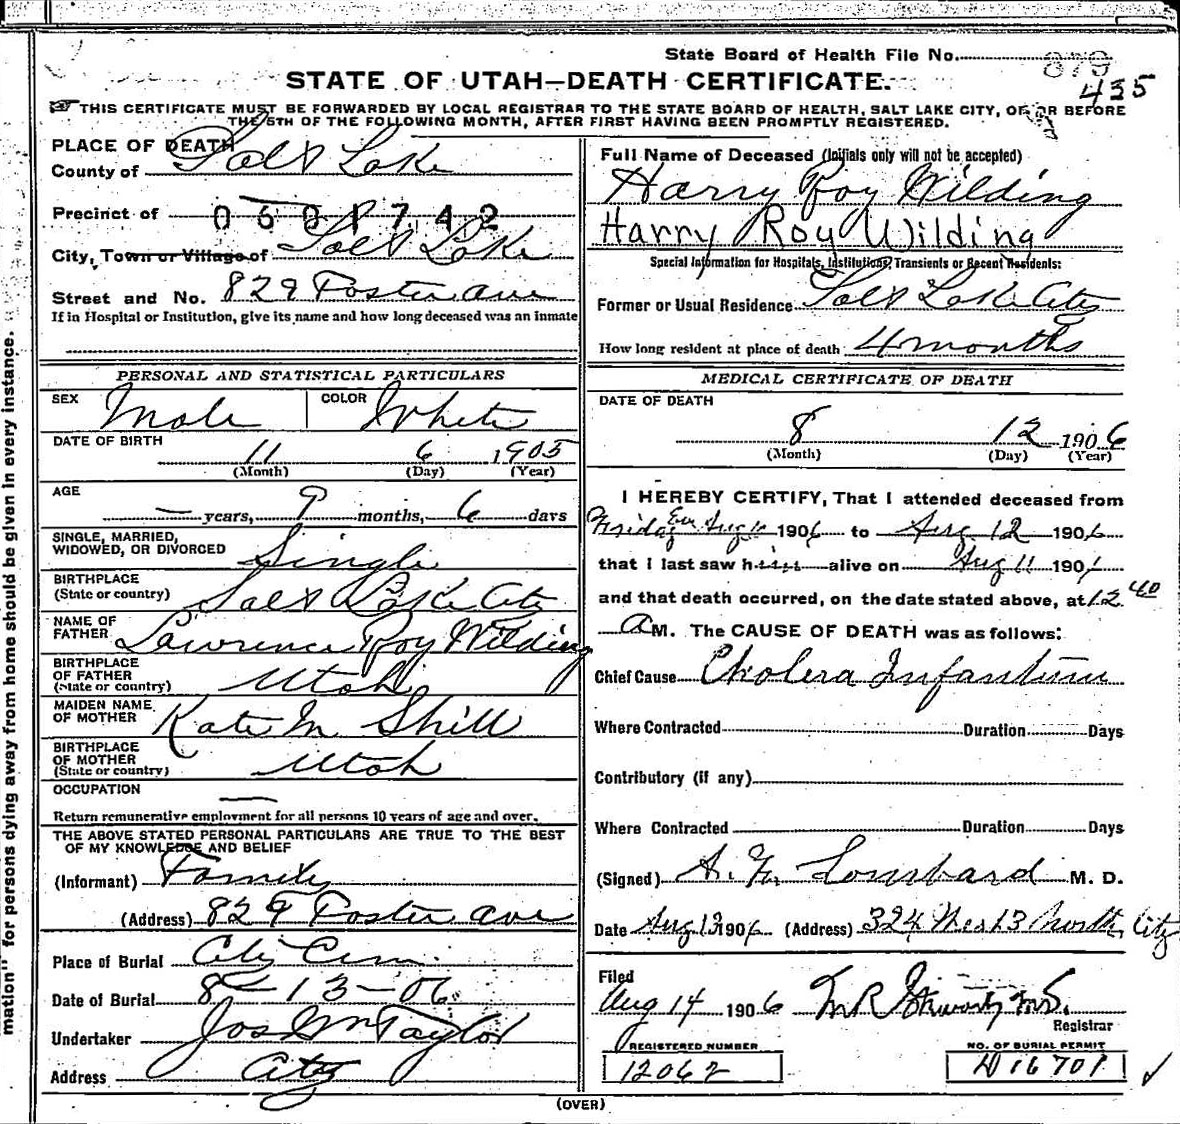 State Board of Health File No.
879
435
STATE OF UTAH—DEATH CERTIFICATE.
THIS CERTIFICATE MUST BE FORWARDED BY LOCAL REGISTRAR TO THE STATE BOARD OF HEALTH, SALT LAKE CITY, ON OR BEFORE
THE 5TH OF THE FOLLOWING MONTH, AFTER FIRST HAVING BEEN PROMPTLY REGISTERED.
PLACE OF DEATH
County of Salt Lake
Precinct of 0601742
City, Town or Village of Salt Lake
Street and No. 829 Foster Ave
If in Hospital or Institution, give its name and how long deceased was an inmate
PERSONAL AND STATISTICAL PARTICULARS
SEX Male COLOR White
DATE OF BIRTH
11 6 1905
(Month) (Day) (Year)
AGE
— years, 9 months, 6 days
SINGLE, MARRIED,
WIDOWED, OR DIVORCED Single
BIRTHPLACE
(State or country) Salt Lake City
NAME OF
FATHER Lawrence Roy Wilding
BIRTHPLACE
OF FATHER
(State or country) Utah
MAIDEN NAME
OF MOTHER Kate M Shill
BIRTHPLACE
OF MOTHER
(State or country) Utah
OCCUPATION —
Return remunerative employment for all persons 10 years of age and over.
THE ABOVE STATED PERSONAL PARTICULARS ARE TRUE TO THE BEST
OF MY KNOWLEDGE AND BELIEF
(Informant) Family
(Address) 829 Foster Ave
Place of Burial City Cem.
Date of Burial 8-13-06
Undertaker Jos Wm Taylor
Address City
Full Name of Deceased (Initials only will not be accepted)
Harry Roy Wilding
Harry Roy Wilding
Special Information for Hospitals, Institutions, Transients or Recent Residents:
Former or Usual Residence Salt Lake City
How long resident at place of death 4 months
MEDICAL CERTIFICATE OF DEATH
DATE OF DEATH
8 12 1906
(Month) (Day) (Year)
I HEREBY CERTIFY, That I attended deceased from
Friday Eve Aug 10 1906 to Aug 12 1906
that I last saw him alive on Aug 11 1906
and that death occurred, on the date stated above, at 12.40
A M. The CAUSE OF DEATH was as follows:
Chief Cause Cholera Infantum
Where Contracted Duration Days
Contributory (if any)
Where Contracted Duration Days
(Signed) Lombard M. D.
Date Aug 13 1906 (Address) 324 West 3 North City
Filed
Aug 14 1906
Registrar
REGISTERED NUMBER
12062
NO. OF BURIAL PERMIT
D 16701
(OVER)
mation" for persons dying away from home should be given in every instance.